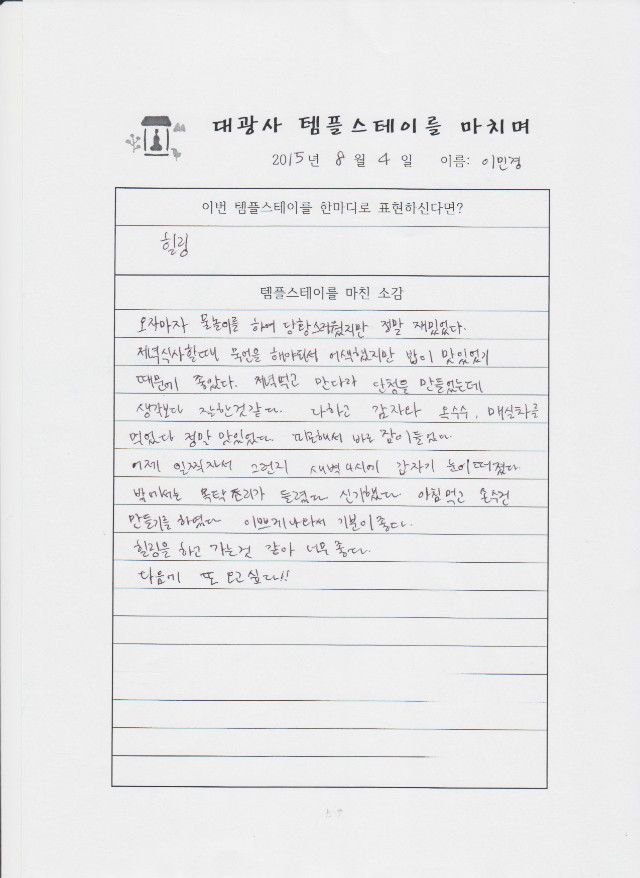 대광사 템플스테이를 마치며
2015년 8월 4일 이름: 이민경
이번 템플스테이를 한마디로 표현하신다면?
힐링
템플스테이를 마친 소감
오자마자 물놀이를 하여 당황스러웠지만 정말 재밌었다.
저녁식사할때 묵언을 해야되서 어색했지만 밥이 맛있었기
때문에 좋았다. 저녁먹고 만다라 단청을 만들었는데
생각보다 잘한것같다. 다하고 감자랑 옥수수, 매실차를
먹었다 정말 맛있었다. 피곤해서 바로 잠이들었다.
어제 일찍자서 그런지 새벽 4시에 갑자기 눈이 떠졌다.
밖에서는 목탁소리가 들렸다 신기했다 아침먹고 손수건
만들기를 하였다 이쁘게나와서 기분이좋다.
힐링을 하고 가는것 같아 너무 좋다.
다음에 또 오고싶다!!